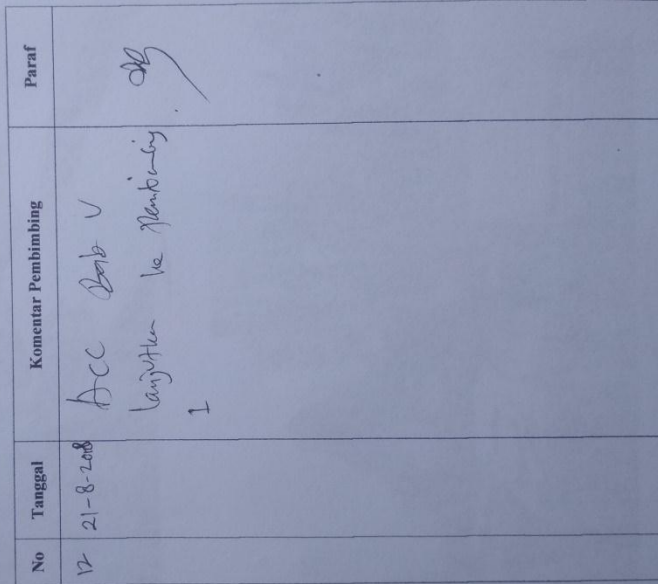 No Tanggal Komentar Pembimbing Paraf
12 21-8-2018 Acc Bab V
lanjutkan ke pembimbing
1